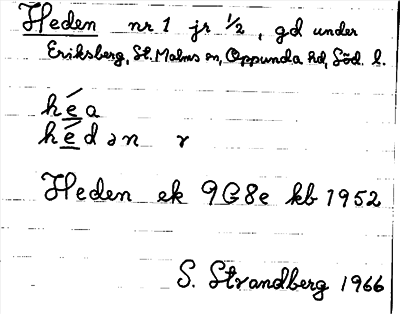 Heden nr 1 jr 1/2, gd under
Eriksberg, St. Malms sn, Oppunda hd, Söd. l.
hé̲a
hé̲dən r
Heden ek 9G8e kb 1952
S. Strandberg 1966